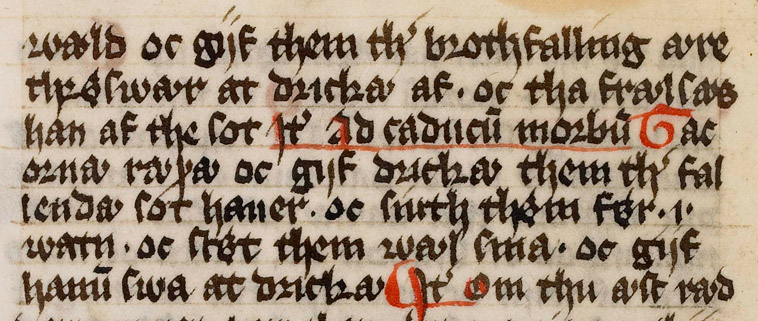 wald oc gijf them thꝫ brothfalling ære
thrøswar at dricka af · oc tha frælsas
han af the sot Itꝫ Ad caducū morbū Tac
orna rapa oc gijf dricka them thꝫ fal
lenda sot hauer · oc siuth them før · i ·
watn · oc støt them wæl sma · oc gijf
hanū swa at dricka Itꝫ Om thu æst ræd